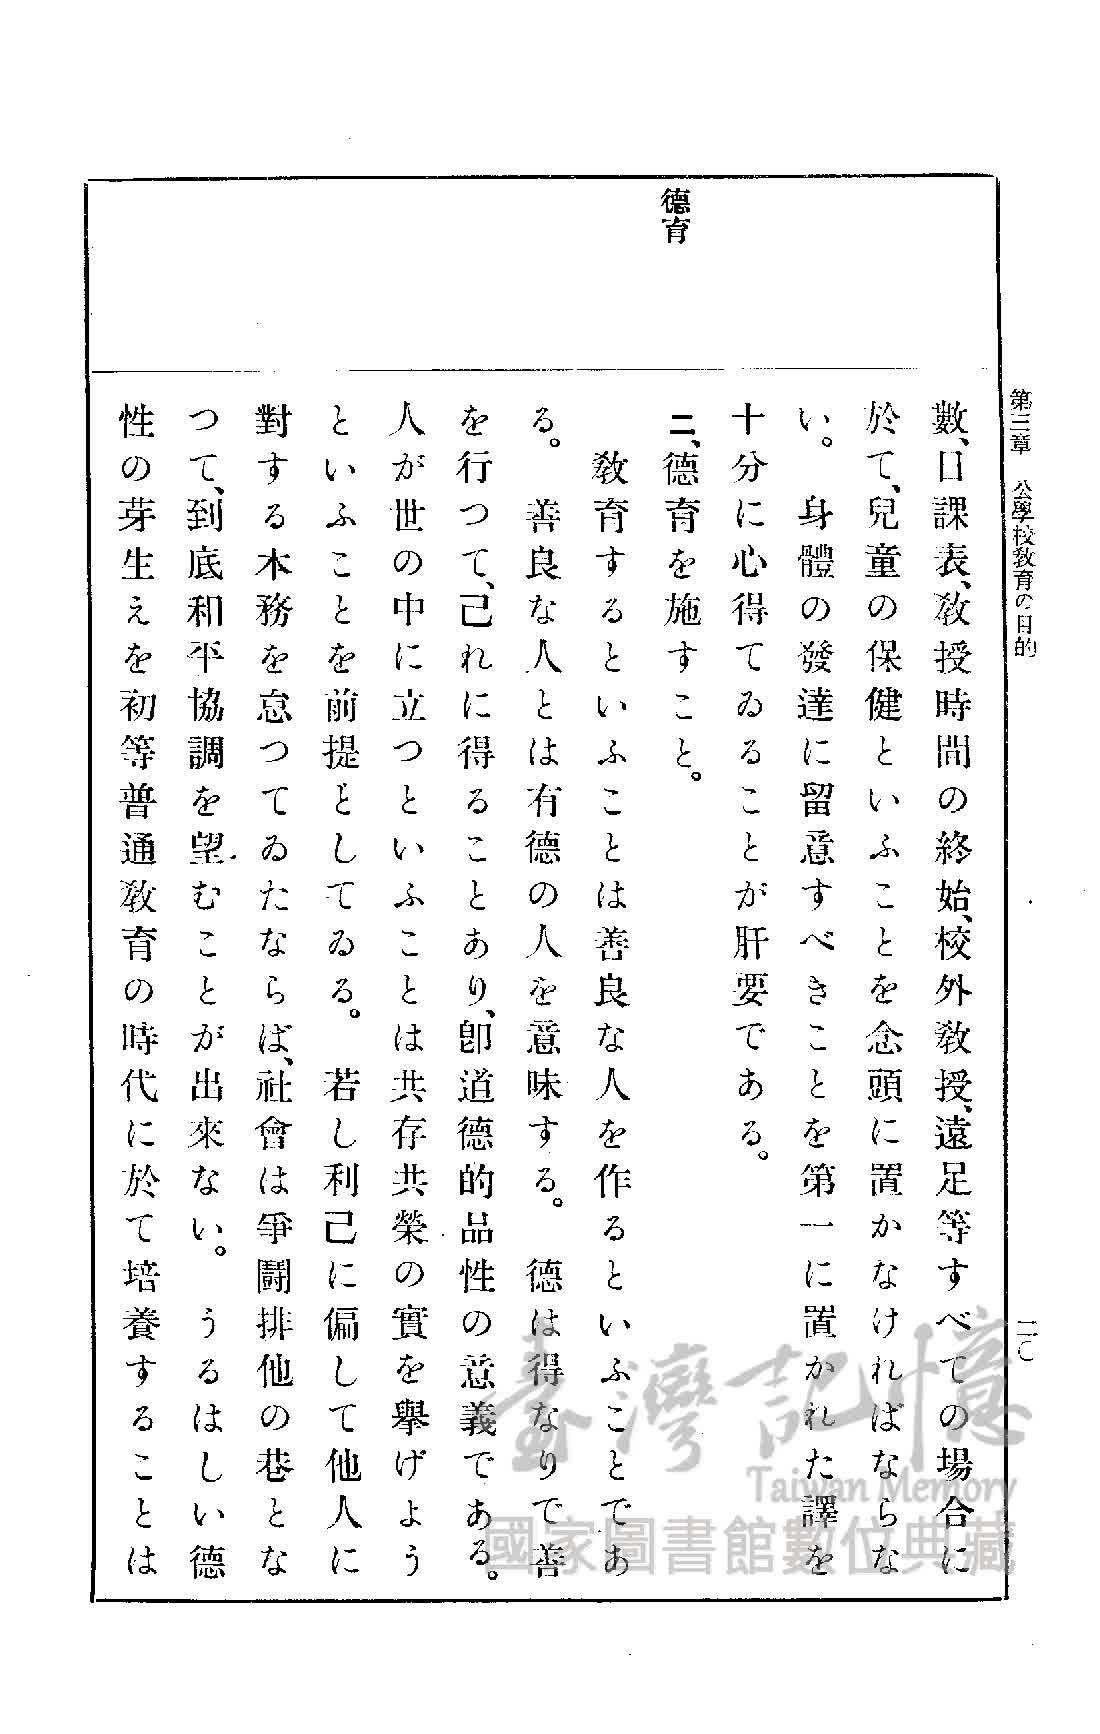 第三章　公學校教育の目的
二〇
德育
數、日課表、教授時間の終始、校外教授、遠足等すべての場合に
於て、兒童の保健といふことを念頭に置かなければならな
い。　身體の發達に留意すべきことを第一に置かれた譯を
十分に心得てゐることが肝要である。
二、德育を施すこと。
教育するといふことは善良な人を作るといふことであ
る。　善良な人とは有德の人を意味する。　德は得なりで善
を行つて、己れに得ることとあり、卽道德的品性の意義である。
人が世の中に立つといふことは共存共榮の實を擧げよう
といふことを前提としてゐる。　若し利己に偏して他人に
對する本務を怠つてゐたならば、社會は爭鬪排他の巷とな
つて、到底和平協調を望むことが出來ない。　うるはしい德
性の芽生えを初等普通教育の時代に於て培養することは
臺灣記憶
Taiwan Memory
國家圖書館數位典藏